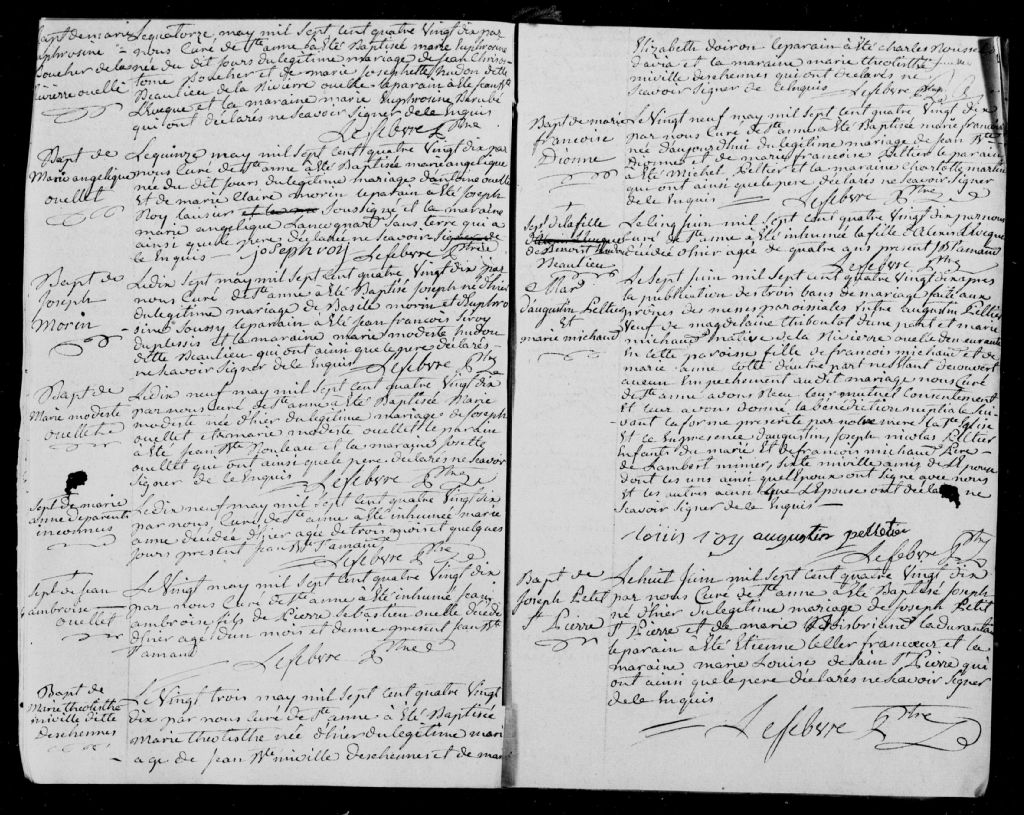 Bapt de marie
Euphrosine
Boucher de la
Rivierre ouelle
Le quatorze may mil Sept Cent quatre Vingt dix par
nous Curé de Ste anne a Eté Baptisée marie Euphrosine
née du dit jours du legitime mariage de Jean Chriso-
tome Boucher et de marie Josephette hudon dette
Beaulieu de la Rivierre ouelle le parain a Eté jean Bte
Levêque et la maraine marie Euphrosine Berubé
qui ont declarés ne Scavoir Signer de le Enquis
Lefebvre Ptre
Bapt de
Marie angelique
ouellet
Le quinze may mil Sept Cent quatre Vingt dix par
nous Curé de Ste anne a Eté Baptisée marie angelique
née du dit jours du legitime mariage d'antoine ouelle
Et de marie Claire morin le parain a Eté joseph
Roy lausier Soussigné et la maraine
marie angelique Sans terre qui a
ainsi que le pere declarée ne Scavoir Signer de
le Enquis Joseph roy Lefebvre Ptre
Bapt de
Joseph
Morin
Le dix Sept may mil Sept Cent quatre Vingt dix par
nous Curé de Ste anne a Eté Baptisé Joseph né d'hier
du legitime mariage de Basile morin et d'Euphro
sine Soussy le parain a Eté jean francois Sirois
duplessis et la maraine marie modeste hudon
dette Beaulieu qui ont ainsi que le pere declarés
ne Scavoir Signer de le Enquis Lefebvre Ptre
Bapt de
Marie modeste
ouellet
Le dix neuf may mil Sept Cent quatre Vingt dix
par nous Curé de Ste anne a Eté Baptisée Marie
modeste née d'hier du legitime mariage de Joseph
ouellet et marie modeste ouellet le parain
a Eté jean Bte Rouleau et la maraine josette
ouellet qui ont ainsi que le pere declarés ne Scavoir
Signer de le Enquis Lefebvre Ptre
Sept de marie
anne de parents
inconnus
Le dix neuf may mil Sept Cent quatre Vingt dix
par nous Curé de Ste anne a Eté inhumée marie
anne decidée d'hier agée de trois mois et quelques
jours present jean Bte St amant
Lefebvre Ptre
Sept de Jean
ambroise
ouellet
Le Vingt may mil Sept Cent quatre Vingt dix
par nous Curé de Ste anne a Eté inhumé jean
ambroise fils de Pierre Sebastien ouelle decidé
d'hier agé d'un mois et demie present jean Bte
St amant
Lefebvre Ptre
Bapt de
Marie theotisthe
miville dette
deschennes
Le Vingt trois may mil Sept Cent quatre Vingt
dix par nous Curé de Ste anne a Eté Baptisée
Marie theotisthe née d'hier du legitime mari
age de jean Bte miville deschennes et de mar
Elizabeth doiron le parain a Eté charles
et la maraine marie theotisthe
miville deschennes qui ont declarés ne
Scavoir Signer de le Enquis Lefebvre Ptre
Bapt de marie
francoise
Dionne
Le Vingt neuf may mil Sept Cent quatre Vingt dix
par nous Curé de Ste anne a Eté Baptisée marie francoise
née d'aujourd'hui du legitime mariage de jean Bte
Dionnes et de marie francoise Peltier le parain
a Eté Michel Peltier et la maraine Charlotte martin
qui ont ainsi que le pere declarés ne Scavoir Signer
de le Enquis Lefebvre Ptre
Sept de la fille
de Benoit hudon
Beaulieu
Le Cinq juin mil Sept Cent quatre Vingt dix par nous
Curé de Ste anne a Eté inhumée la fille d'Alexis Leveque
decidée d'hier agée de quatre ans present St amant
Lefebvre Ptre
Mar
d'augustin Peltier
Et
marie michaud
Le Sept Juin mil Sept Cent quatre Vingt dix apres
la publication des trois bans de mariage faite aux
prones des messes paroissiales Entre augustin Peltier
Veuf de magdelaine thiboutot d'une part et marie
michaud native de la Rivierre ouelle demeurante
En cette paroisse fille de francois michaud et de
marie anne Cotté d'autre part n'Etant decouvert
aucun Empechement au dit mariage nous Curé
de Ste anne avons Recu leur mutuel Consentement
Et leur avons donné la benediction nuptiale Sui-
vant la forme prescrite par notre mere la Ste Eglise
Et Ce En presence d'augustin, Joseph nicolas Peltier
Enfants du marié et de francois michaud Pere
de Lambert miner, miville amis de l'Epouse
dont les uns ainsi que l'Epoux ont Signé avec nous
Et les autres ainsi que l'Epouse ont declarés ne
Scavoir Signer de le Enquis
louis roy augustin pelletier
Lefebvre Ptre
Bapt de
Joseph Petit
St Pierre
Le huit Juin mil Sept Cent quatre Vingt dix
par nous Curé de Ste anne a Eté Baptisé Joseph
né d'hier du legitime mariage de joseph Petit
St Pierre et de marie la durantay
le parain a Eté Etienne letellier francœur et la
maraine marie Louise de Sain St Pierre qui
ont ainsi que le pere declarés ne Scavoir Signer
de le Enquis
Lefebvre Ptre